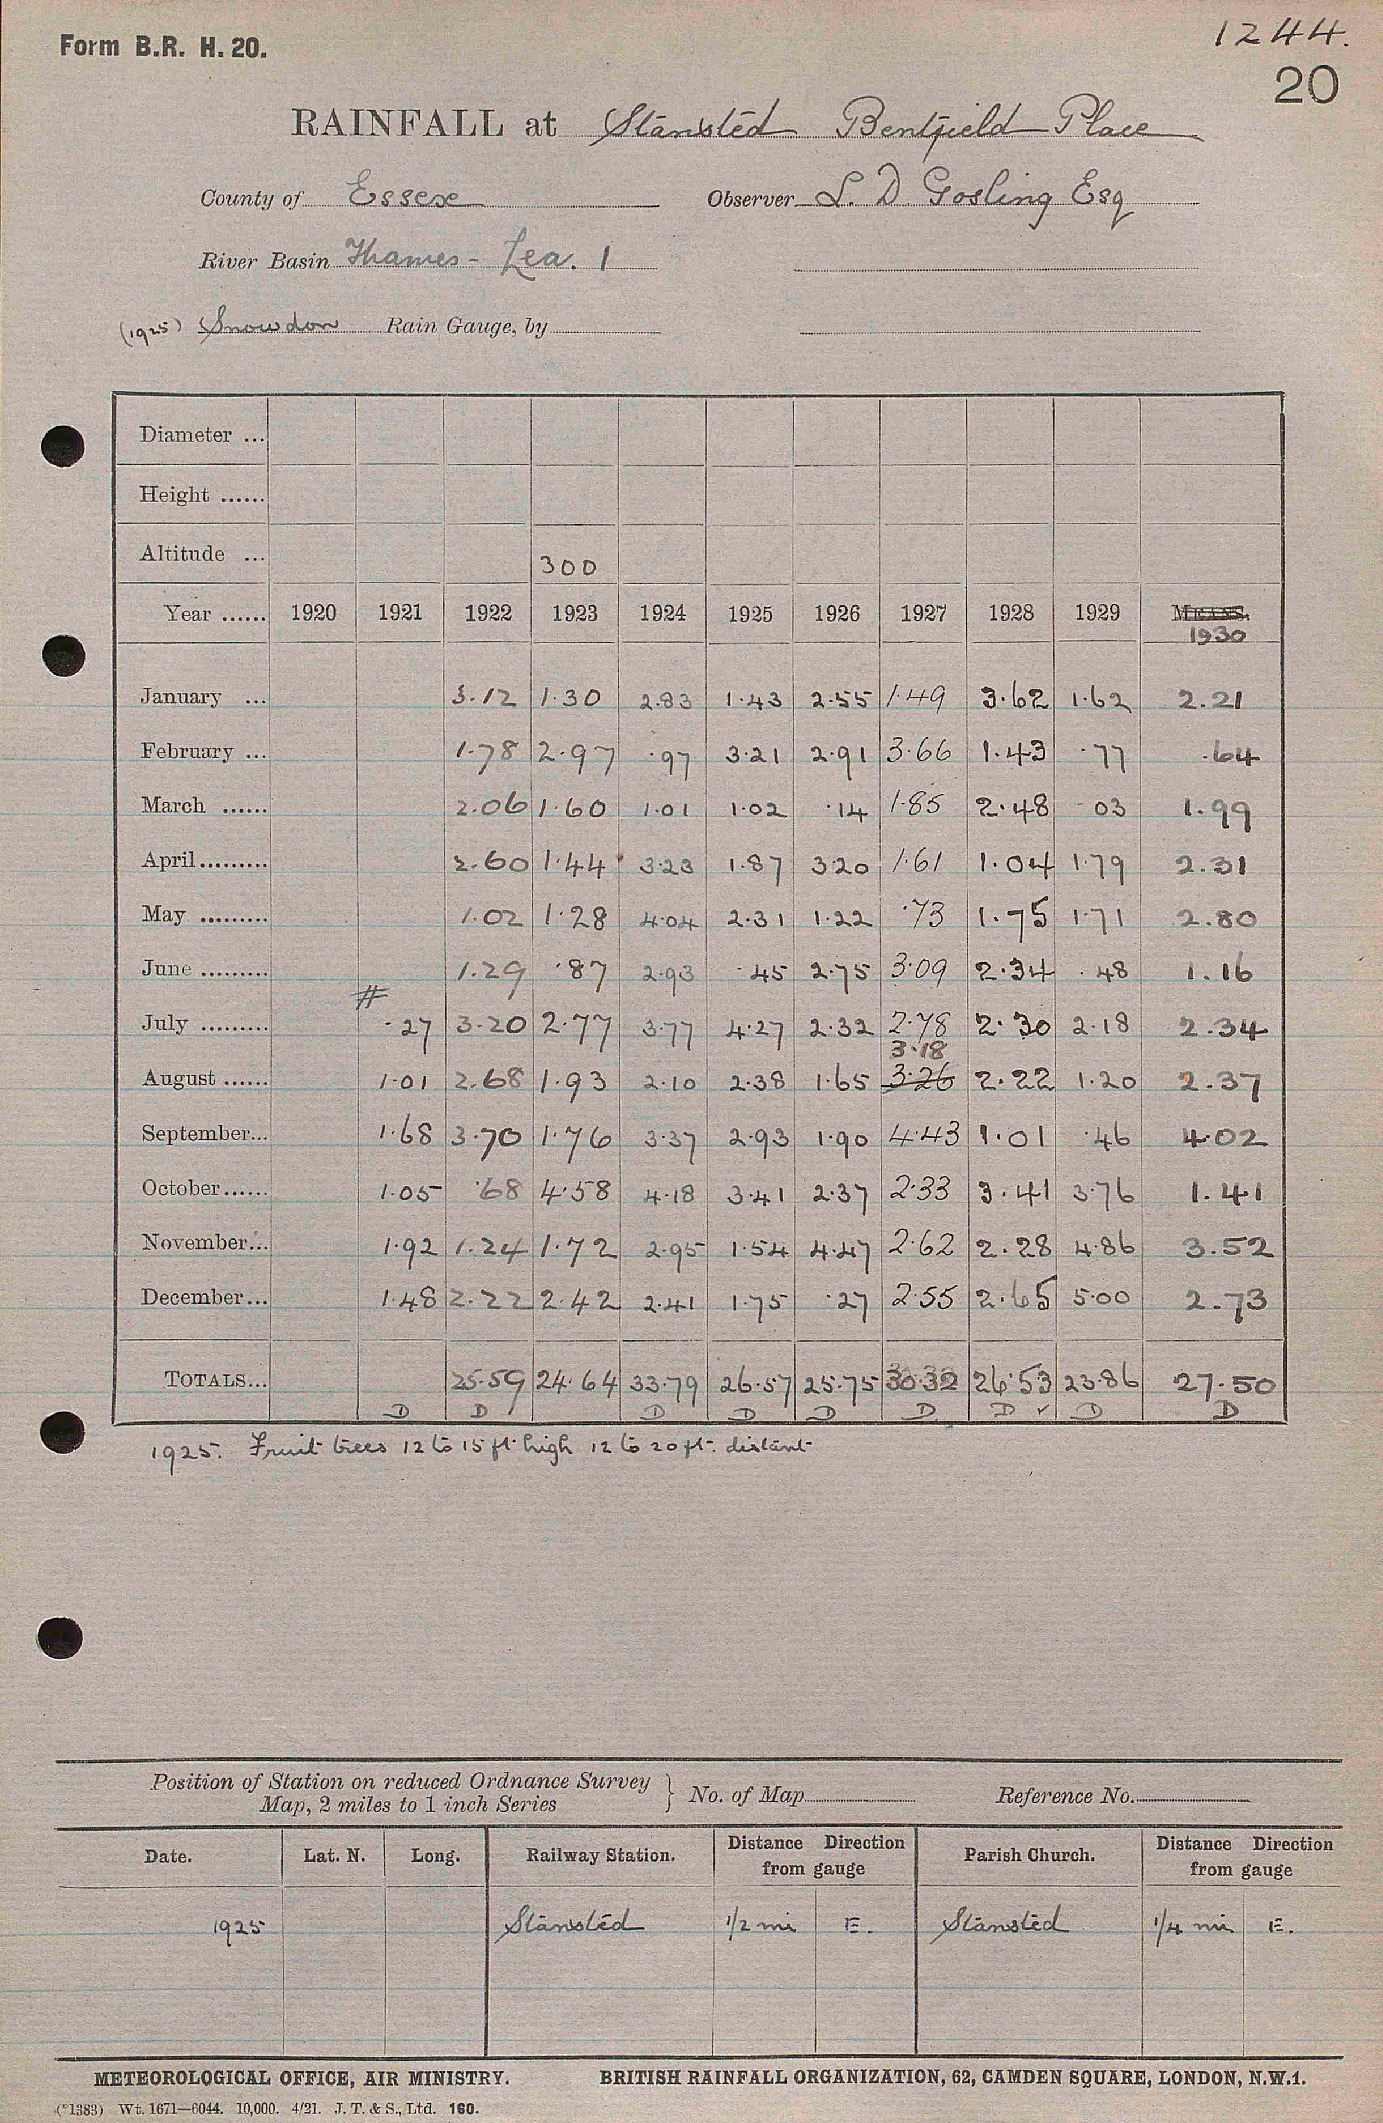 Form B.R. H. 20.
1244.
20
RAINFALL at Stansted Bentfield Place
County of Essex Observer L. D Gosling Esq
River Basin Thames - Lea. 1
(1925) Snowdon Rain Gauge, by
Diameter ...
Height ......
Altitude ... 300
Year ...... 1920 1921 1922 1923 1924 1925 1926 1927 1928 1929 MEANS.
1930
January ... 3.12 1.30 2.83 1.43 2.55 1.49 3.62 1.62 2.21
February ... 1.78 2.97 .97 3.21 2.91 3.66 1.43 .77 .64
March ...... 2.06 1.60 1.01 1.02 .14 1.85 2.48 03 1.99
April ......... 2.60 1.44 3.23 1.87 3.20 1.61 1.04 1.79 2.31
May ......... 1.02 1.28 4.04 2.31 1.22 .73 1.75 1.71 2.80
June ......... 1.29 .87 2.93 .45 2.75 3.09 2.34 .48 1.16
#
July ......... .27 3.20 2.77 3.77 4.27 2.32 2.78 2.30 2.18 2.34
3.18
August ...... 1.01 2.68 1.93 2.10 2.38 1.65 3.26 2.22 1.20 2.37
September... 1.68 3.70 1.76 3.37 2.93 1.90 4.43 1.01 .46 4.02
October...... 1.05 .68 4.58 4.18 3.41 2.37 2.33 3.41 3.76 1.41
November... 1.92 1.24 1.72 2.95 1.54 4.47 2.62 2.28 4.86 3.52
December... 1.48 2.22 2.42 2.41 1.75 .27 2.55 2.65 5.00 2.73
TOTALS... 25.59 24.64 33.79 26.57 25.75 30.32 26.53 23.86 27.50
D D D D D D D ✓ D D
1925. Fruit trees 12 to 15 ft high 12 to 20 ft. distant
Position of Station on reduced Ordnance Survey
Map, 2 miles to 1 inch Series } No. of Map Reference No.
Date. Lat. N. Long. Railway Station. Distance Direction from gauge Parish Church. Distance Direction from gauge
1925 Stansted 1/2 mi E. Stansted 1/4 mi E.
METEOROLOGICAL OFFICE, AIR MINISTRY. BRITISH RAINFALL ORGANIZATION, 62, CAMDEN SQUARE, LONDON, N.W.1.
(*1383) Wt. 1671—6044. 10,000. 4/21. J. T. & S., Ltd. 160.